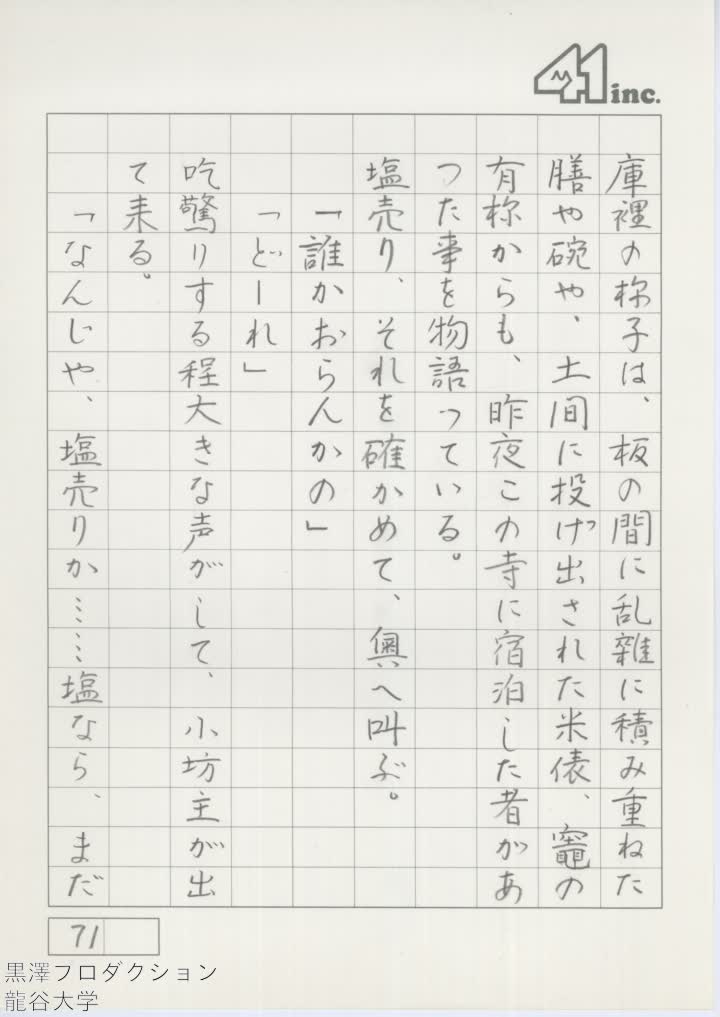 41 inc.
庫裡の様子は、板の間に乱雑に積み重ねた
膳や碗や、土間に投げ出された米俵、竈の
有様からも、昨夜この寺に宿泊した者があ
つた事を物語っている。
塩売り、それを確かめて、奥へ叫ぶ。
「誰かおらんかの」
「どーれ」
吃驚りする程大きな声がして、小坊主が出
て来る。
「なんじや、塩売りか……塩なら、まだ
71
黒澤プロダクション
龍谷大学